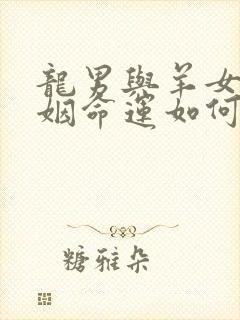 龍男與羊女
姻命運如何
糖雅朵